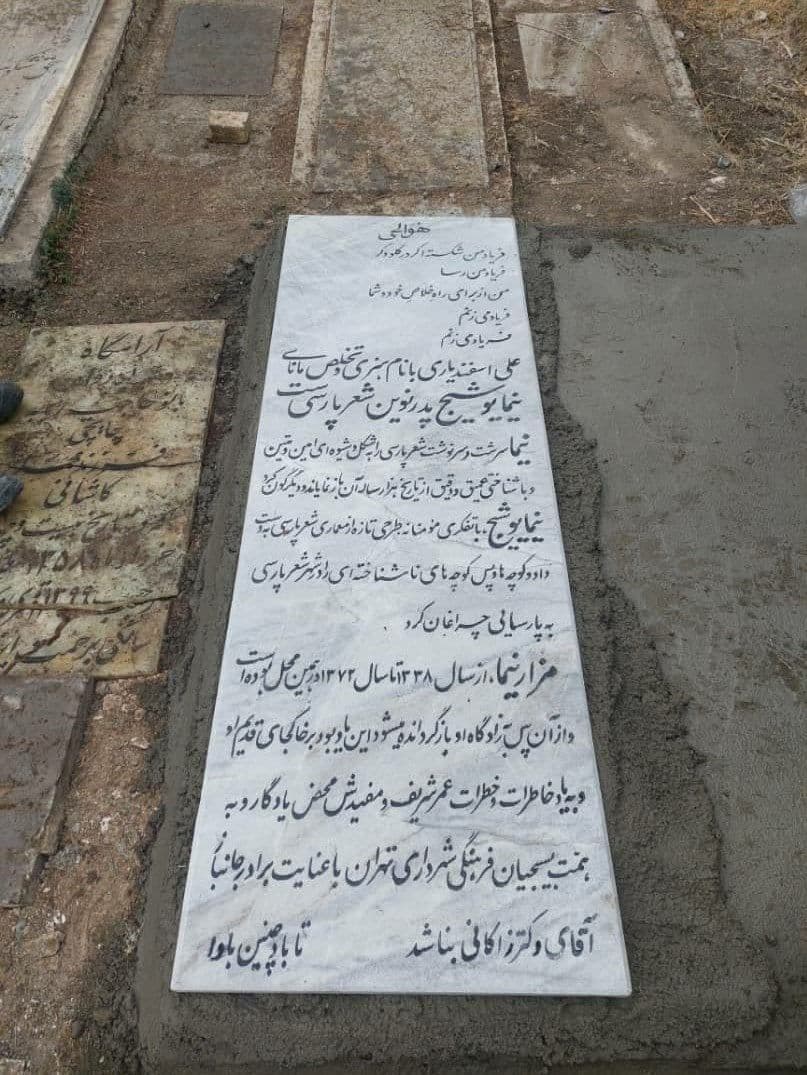 هوالحی
فریاد من شکسته اگر در گلو و گر
فریاد من رسا
من از برای راه خلاص خود و شما
فریاد می زنم
فریاد می زنم
علی اسفندیاری با نام هنری و تخلص مانای
نیما یوشیج پدر نوین شعر پارسی است
نیما سرشت و سرنوشت شعر پارسی را به شکل و شیوه ای امین و متین
و با شناختی عمیق و دقیق از تاریخ هزار ساله آن باز نمایاند و دیگرگون کرد
نیما یوشیج، با تفکری مومنانه طرحی تازه از معماری شعر پارسی به دست
داد و کوچه ها و پس کوچه های ناشناخته ای را در شهر شعر پارسی
به پارسایی چراغان کرد
مزار نیما، از سال ۱۳۳۸ تا سال ۱۳۷۲ در همین محل بوده است
و از آن پس به زادگاه او باز گردانده میشود این یادبود بر خاکجای قدیم او
و به یاد خاطرات و خطرات عمر شریف و مفیدش محض یادگار و به
همت بسیجیان فرهنگی شهرداری تهران با عنایت برادر جانباز
آقای دکتر زاکانی بنا شد تا باد چنین بادا
آرامگاه
چایچی
فرزند
کاشانی